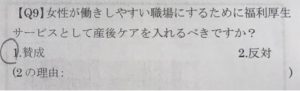 【Q9】女性が働きしやすい職場にするために福利厚生
サービスとして産後ケアを入れるべきですか？
1.賛成 2.反対
(2の理由: )